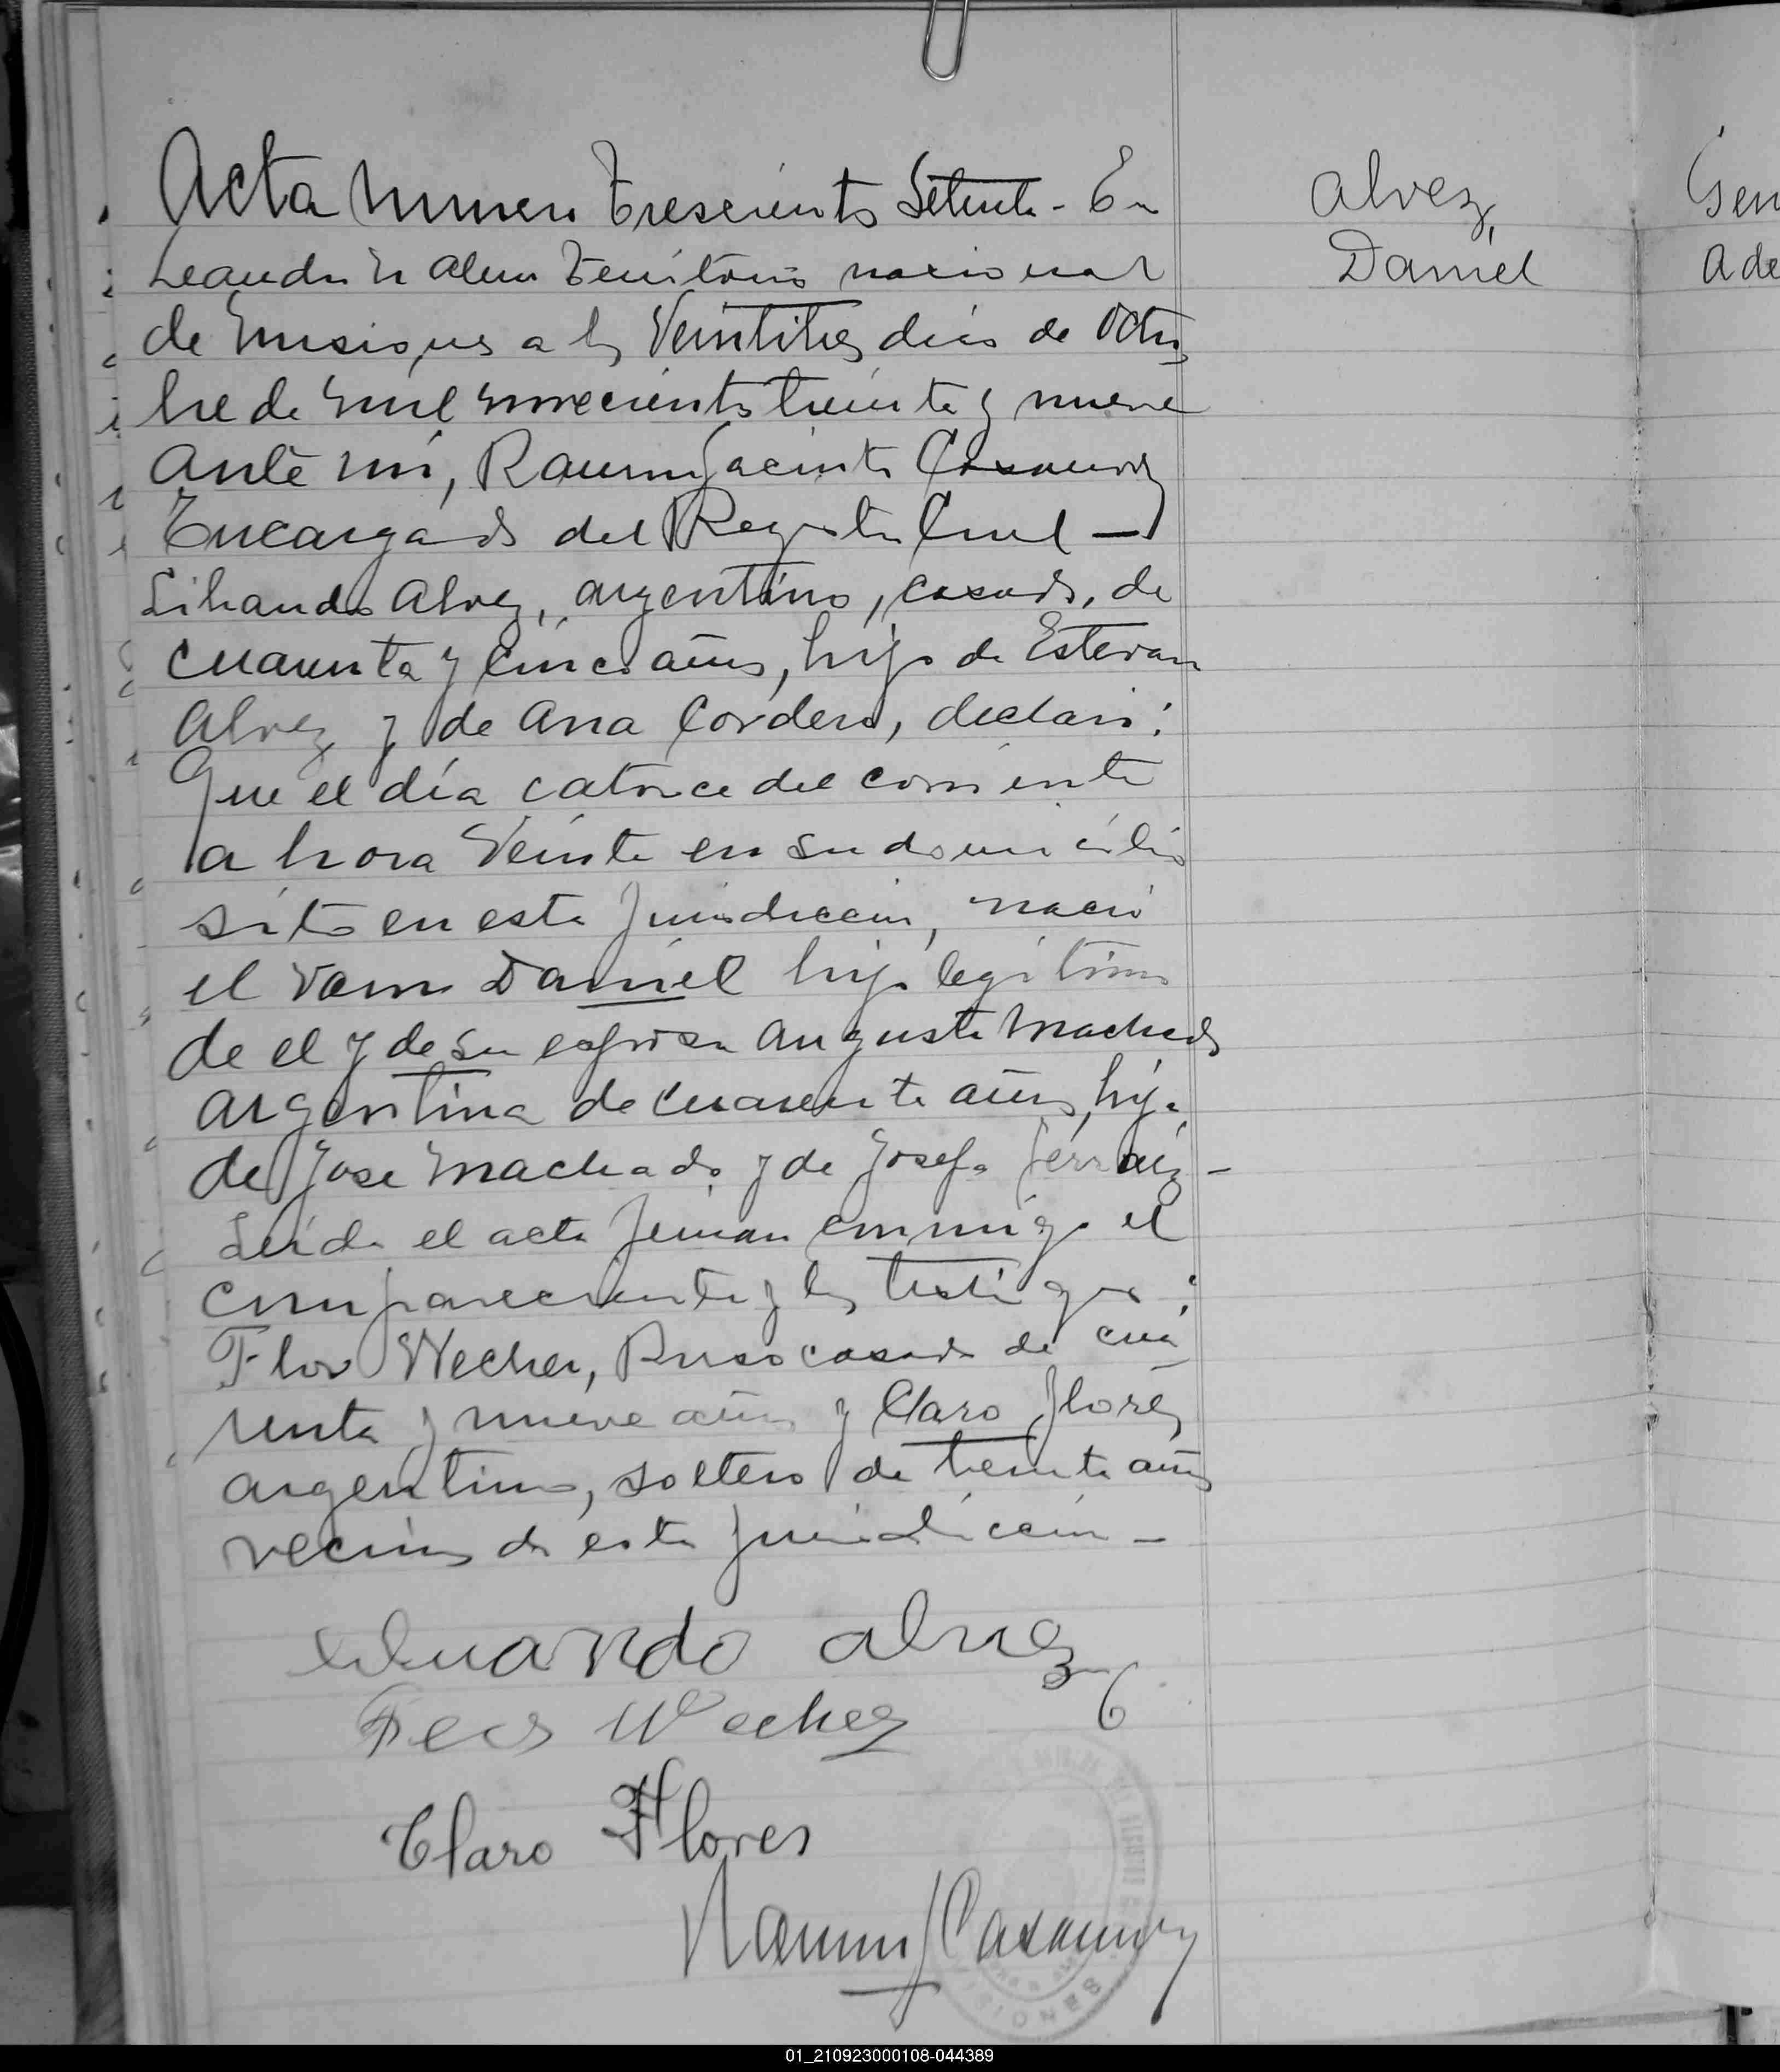 Acta Numero Trescientos Setenta - En
Leandro N Alem Territorio nacional
de Misiones a los Veintitres dias de Octu
bre de mil novecientos treinta y nueve
Ante mi, Ramon Jacinto Casanova
Encargado del Registro Civil —
Libando Alvez, argentino, casado, de
cuarenta y cinco años, hijo de Estevan
Alvez y de Ana Cordero, declaró:
Que el día catorce del corriente
a hora Veinte en su domicilio
sito en esta Jurisdiccion, nació
el varon Daniel hijo legitimo
de el y de su esposa Augusta Machado
argentina de cuarenta años, hija
de Jose Machado y de Josefa Ferraiz -
Leida el acta firman conmigo el
compareciente y los testigos:
Flor Wecher, Ruso casado de cua
renta y nueve años y Claro Flores
argentino, soltero de treinta años
vecinos de esta Jurisdiccion -
Alvez
Wecher
Claro Flores
Ramon J Casanova
Alvez,
Daniel
Gen
Ade
MISIONES
01_210923000108-044389